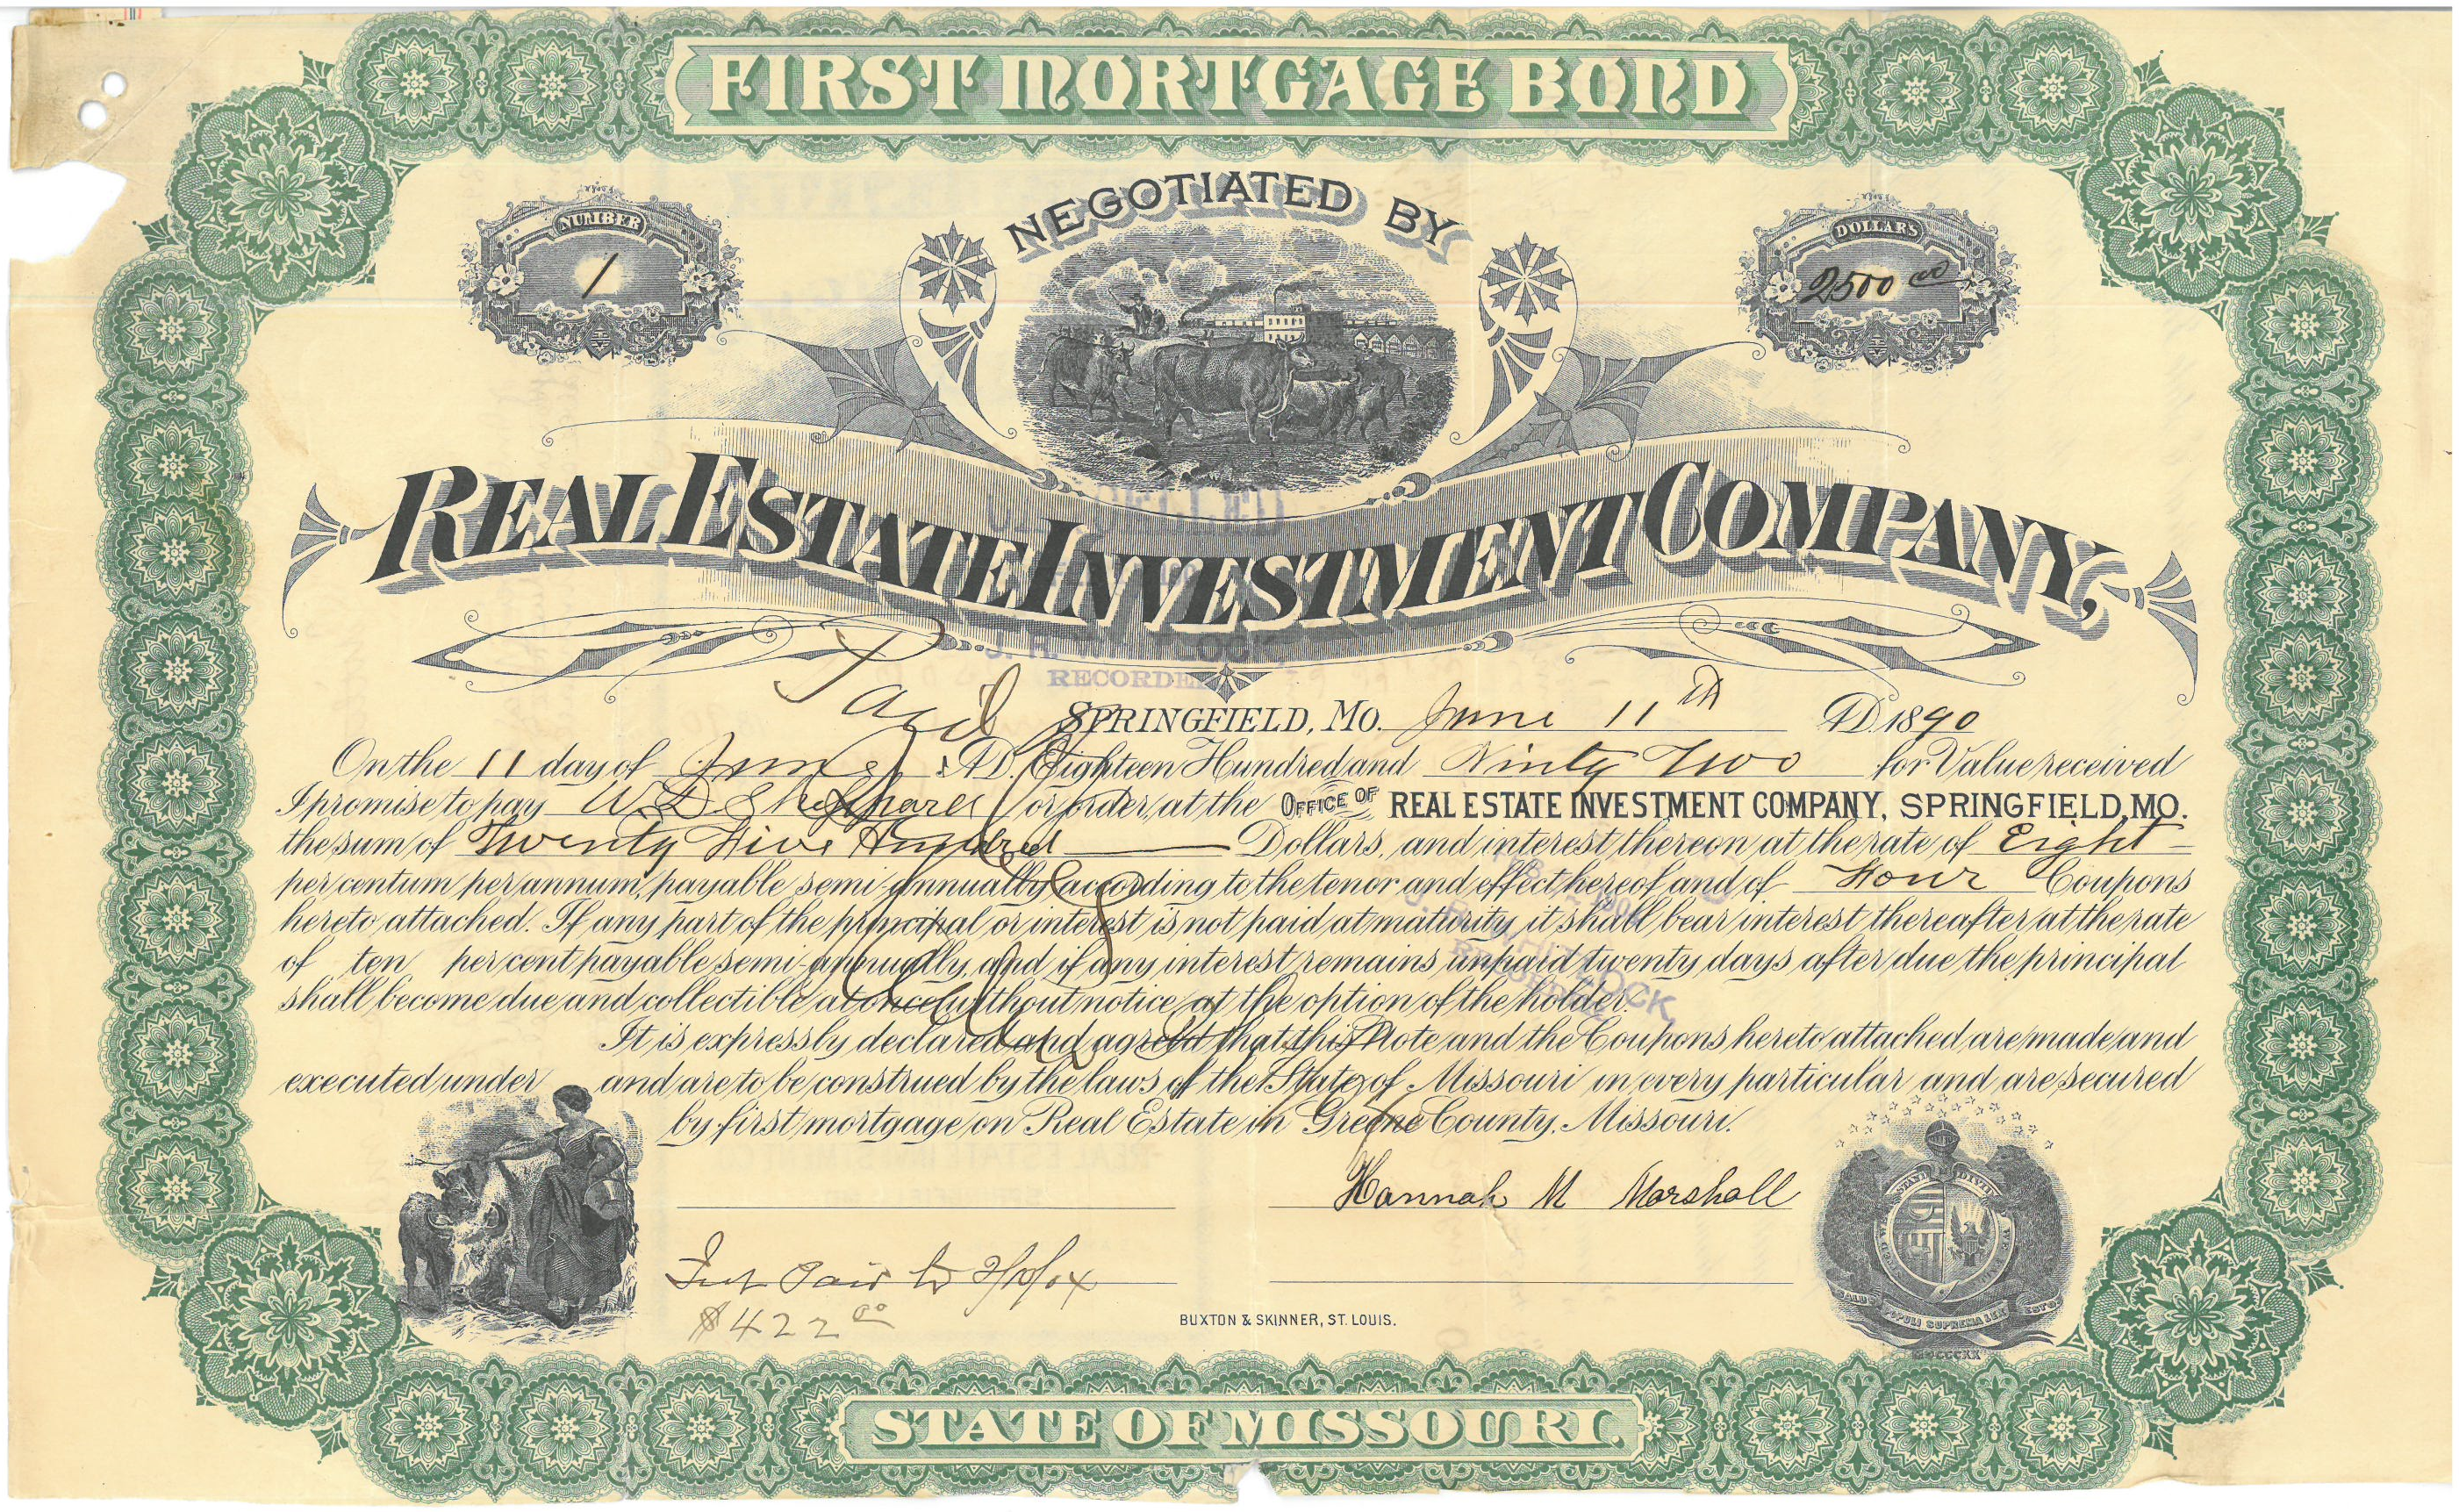 FIRST MORTGAGE BOND
NEGOTIATED BY
NUMBER
1
DOLLARS
2500 00
REAL ESTATE INVESTMENT COMPANY,
RECORDER
Paid
SPRINGFIELD, MO. June 11th A.D. 1890
On the 11 day of June A.D. Eighteen Hundred and Ninty Two for Value received
I promise to pay W. D. Sheppard or order, at the OFFICE OF REAL ESTATE INVESTMENT COMPANY, SPRINGFIELD, MO.
the sum of Twenty Five Hundred Dollars, and interest thereon at the rate of Eight
per centum per annum, payable semi-annually according to the tenor and effect hereof and of Four Coupons
hereto attached. If any part of the principal or interest is not paid at maturity, it shall bear interest thereafter at the rate
of ten per cent payable semi-annually, and if any interest remains unpaid twenty days after due the principal
shall become due and collectible at once without notice, at the option of the holder.
It is expressly declared and agreed that this Note and the Coupons hereto attached are made and
executed under and are to be construed by the laws of the State of Missouri in every particular and are secured
by first mortgage on Real Estate in Greene County, Missouri.
Hannah M Marshall
Int Paid to
$422 00
BUXTON & SKINNER, ST. LOUIS.
SALUS POPULI SUPREMA LEX ESTO
STATE OF MISSOURI.